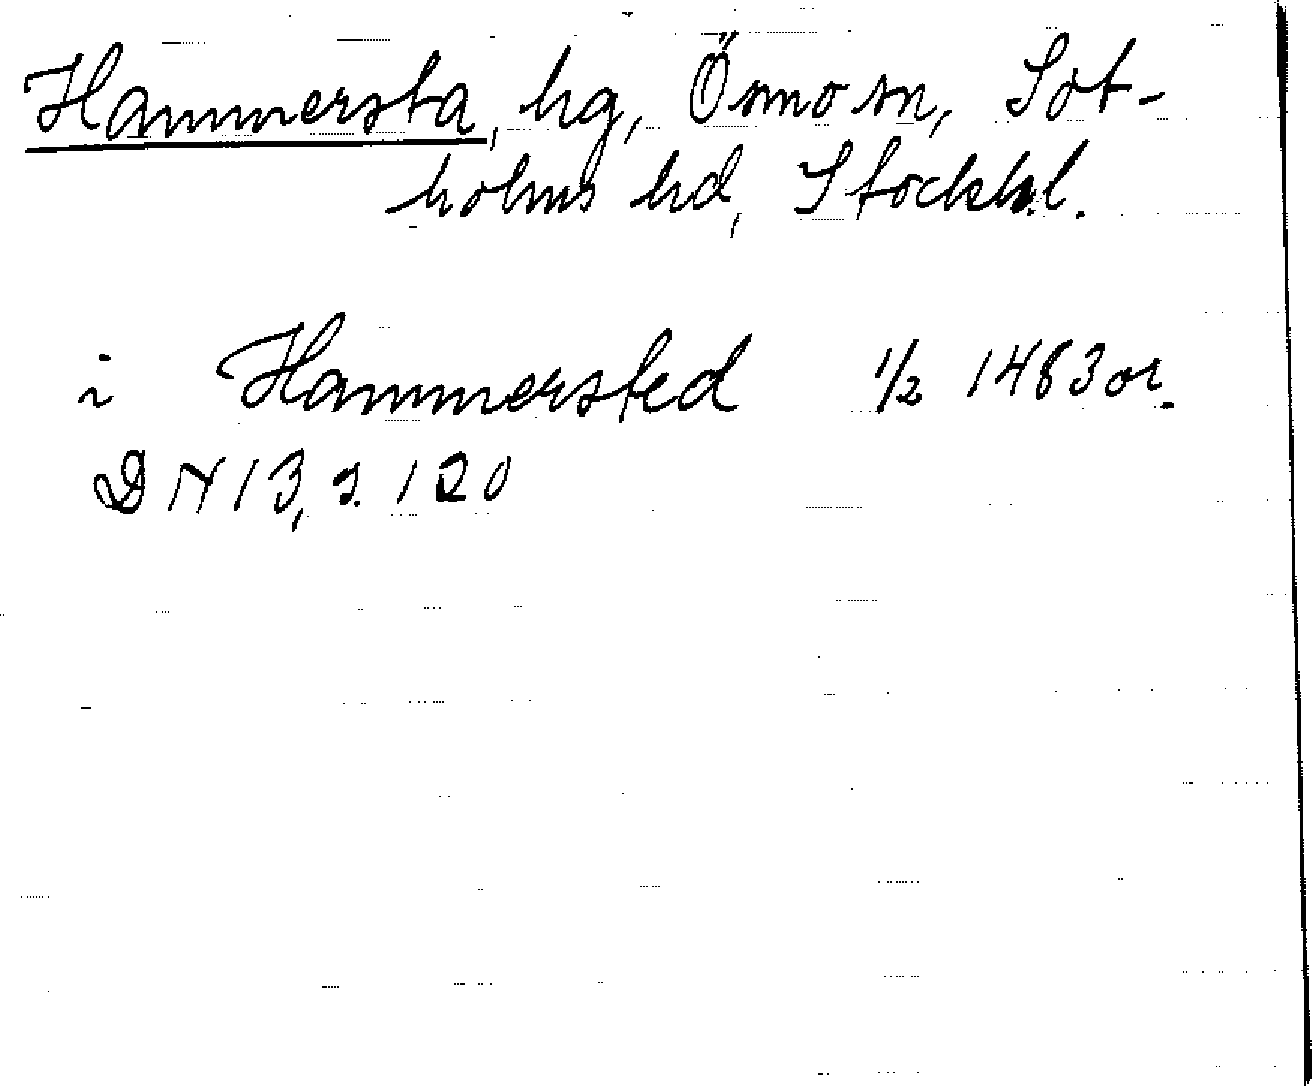 Hammersta, hg, Ösmo sn, Sot-
holms hd, Stockh.l.
i Hammersted 1/2 1483 or.
DN 13, s. 120